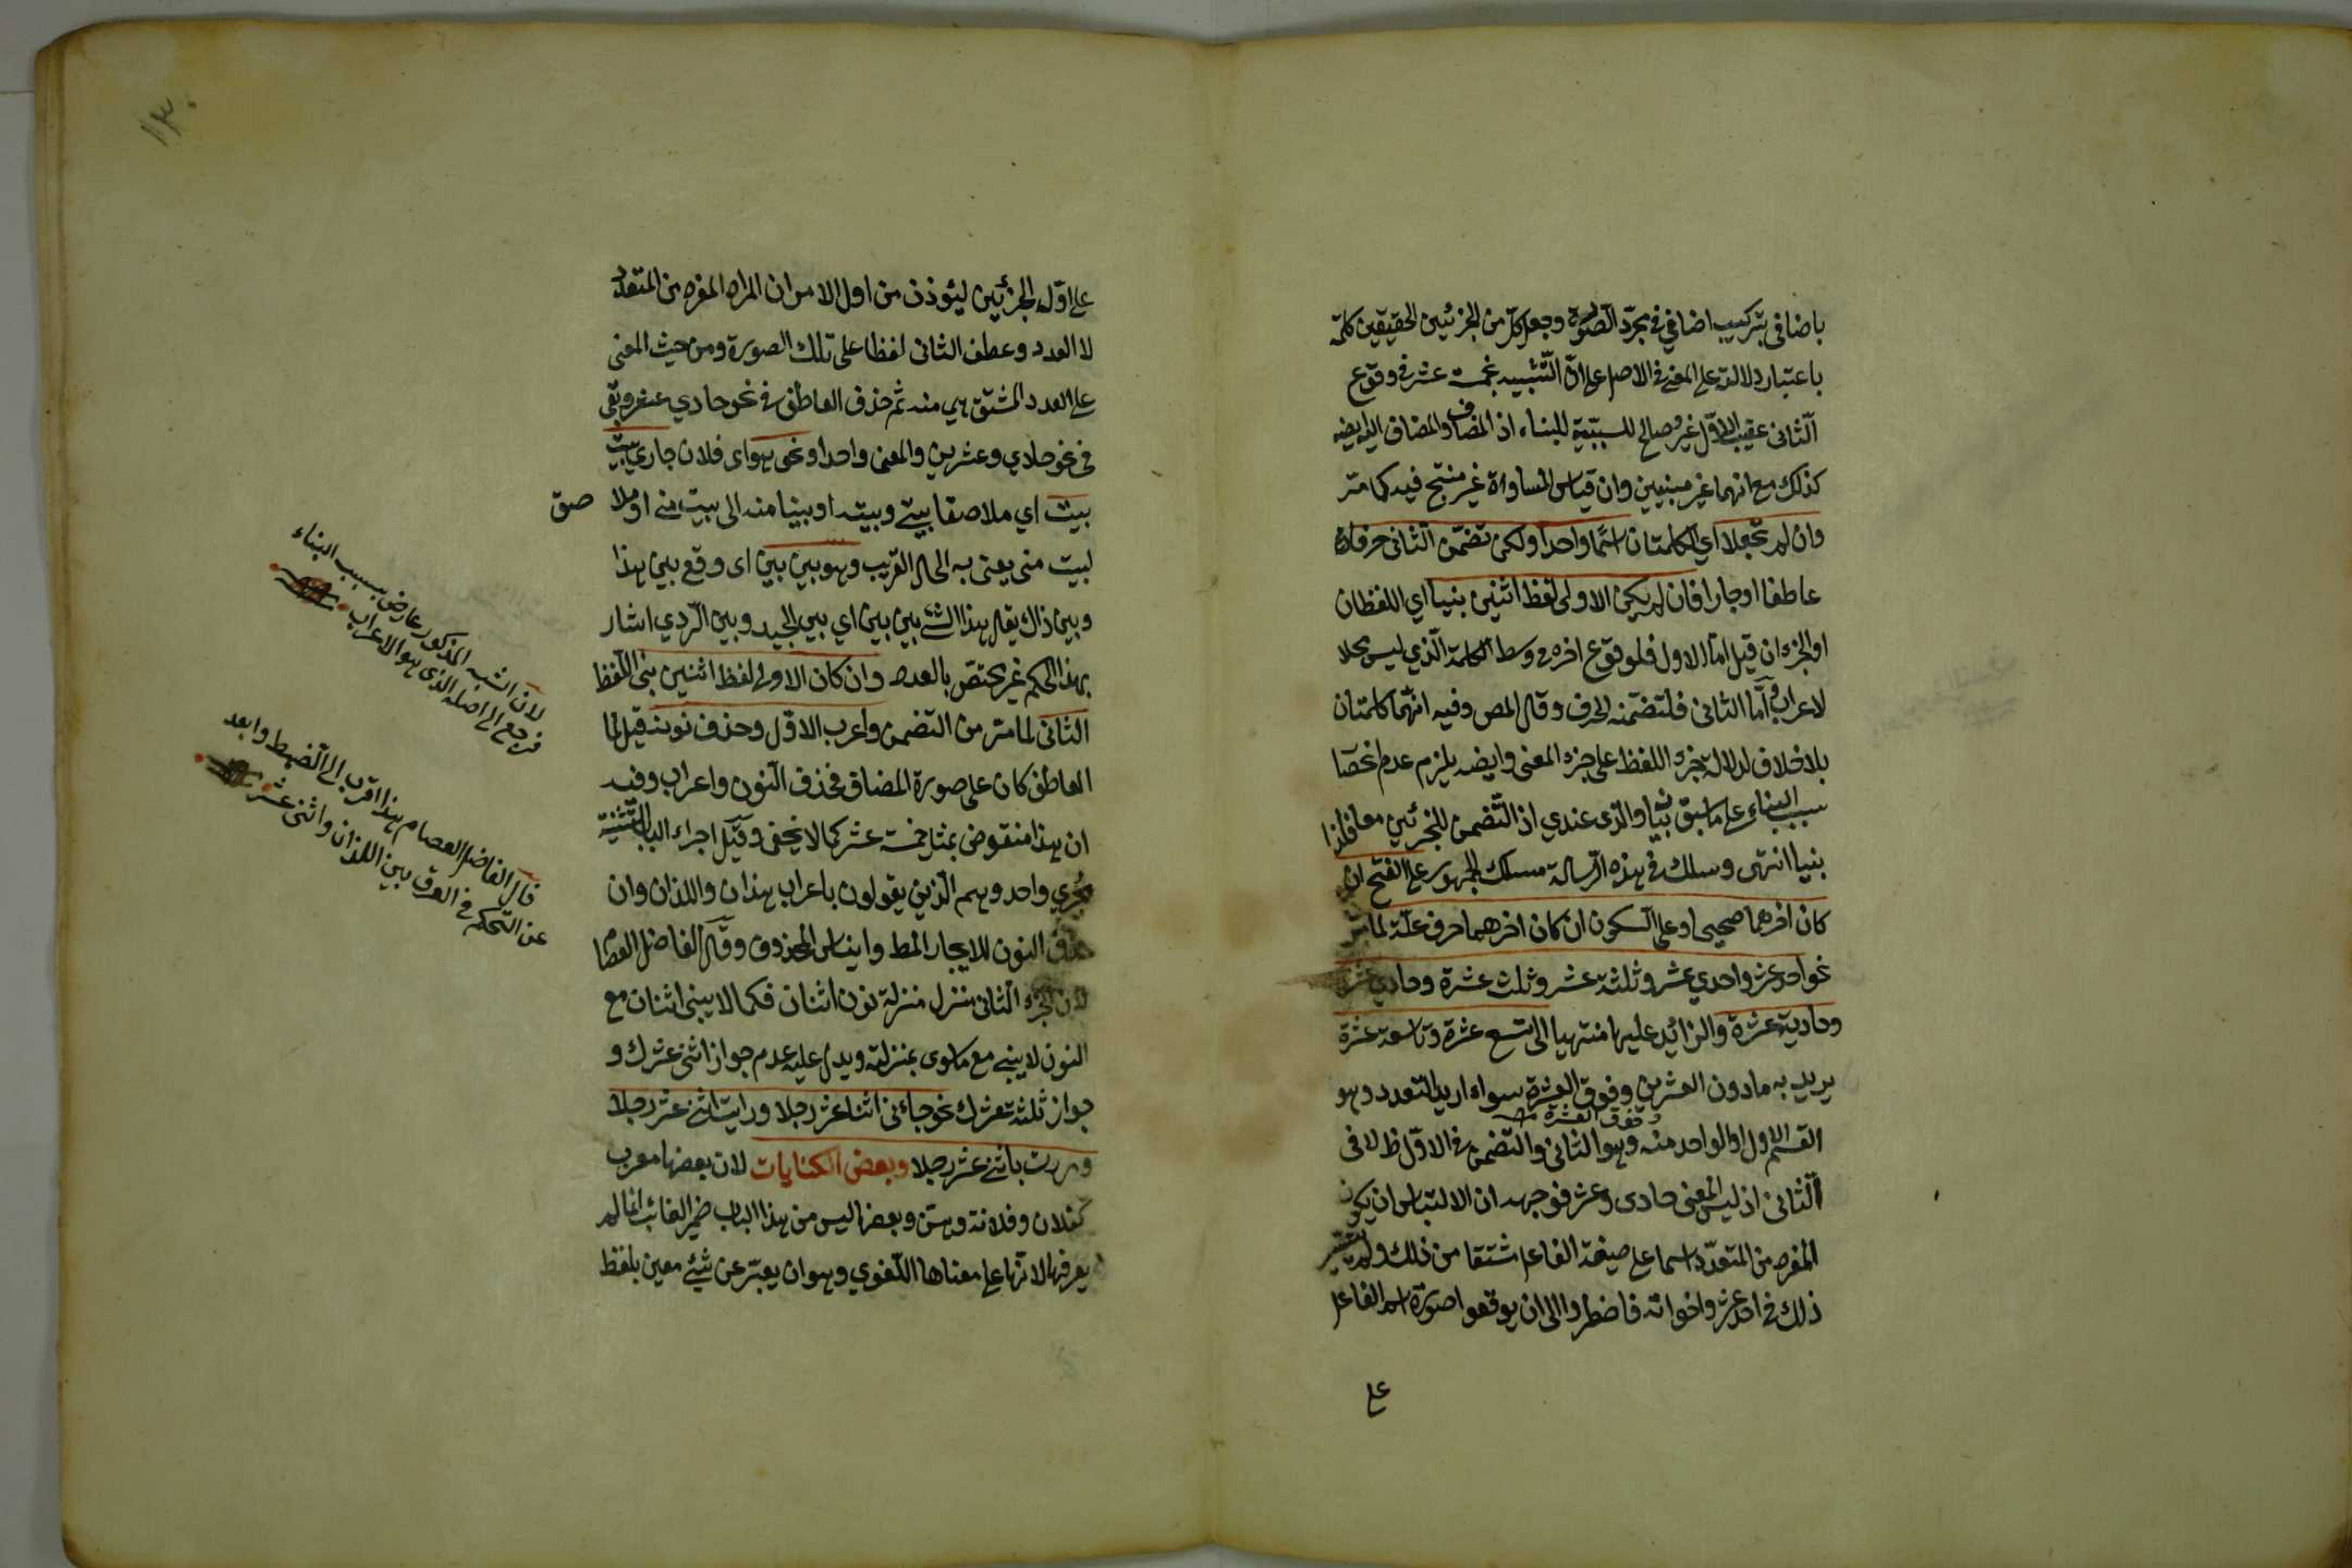 باضافى بتركيب اضافي في مجرّد الصّورة وجعل كل من الجزئين الحقيقين كلمة
باعتبار دلالته على المعنى في الاصل على انّ التّشبيه بخمسة عشر في وقوع
الثانى عقيب الاوّل غير صالح للسببيّة للبناء اذ المضاف والمضاف اليه ايضه
كذلك مع انهما غير مبنيين وان قياس المساواة غير منتج فيه كما مرّ
وان لم تجعلا اي الكلمتان اسمًا واحدا ولكن تضمّن الثانى حرفا
عاطفا او جارا فان لم يكن الاولى لفظ اثنين بنيا اي اللفظان
او الجزءان قيل امّا الاول فلوقوع اخره في وسط الكلمة الّذي ليس محلا
لاعراب وامّا الثانى فلتضمّنه الحرف وقال المص وفيه انّهما كلمتان
بلا خلاف لدلالة جزء اللفظ على جزء المعنى وايضه يلزم عدم انحصا
سبب البناء على ما سبق بيانه والذى عندي اذ التّضمن للجزئين معا فلذا
بنيا انتهى وسلك في هذه الرّسالة مسلك الجمهور على الفتح ان
كان اخرهما صحيحا وعلى السكون ان كان اخرهما حرف علّة لما مرّ
نحو احد عشر واحدي عشر وثلثة عشر وثلث عشرة وحادي عشر
وحادية عشرة والزائد عليها منتهيا الى تسع عشرة وتاسعة عشرة
يريد به مادون العشرين وفوق العشرة سواء اريد التعدد وهو
وفوق العشرة
القسم الاول او الواحد منه وهو الثانى والتضمن في الاوّل ظ لا فى
الثانى اذ ليس المعنى حادى وعشر فوجهه ان الالتباس ان يكون
المفرد من المتعدّد اسما على صيغة الفاعل مشتقا من ذلك ولم يتيسر
ذلك في احد عشر واخواته فاضطروا الى ان يوقعوا صورة اسم الفاعل
على
١٣٠
على اوّل الجزئين ليؤذن من اول الامر ان المراد المفرد من المتعدد
لا العدد وعطف الثانى لفظا على تلك الصورة ومن حيث المعنى
على العدد المشتق هي منه ثم حذف العاطف في نحو حادي عشر وبقى
فى نحو حادي وعشرين والمعنى واحد ونحو هو اى فلان جاري بيت
بيت اي ملاصقا بيتي وبيته او بيتا منه الى بيت منى او ملا صق
لبيت منى يعنى به الحال القريب وهو بين بين اى وقع بين هذا
وبين ذاك يقال هذا الشئ بين بين اي بين الجيد وبين الرّدي اشار
بهذا الحكم غير مختصّ بالعدد وان كان الاولى لفظ اثنين بنى اللّفظ
الثانى لما مرّ من التضمن واعرب الاوّل وحذف نونه قيل لما
العاطف كان على صورة المضاف فحذف النّون واعراب وفيه
ان هذا منقوض بمثل خمسة عشر كما لا يخفى وقيل اجراء الباب التثنية
مجري واحد وهم الّذين يقولون باعراب هذان واللذان وان
حذف النون للايجاز المط وايناس المحذوف وقال الفاضل العصام
لان الجزء الثانى منزل منزلة نون اثنان فكما لا يبنى اثنان مع
النون لا يبنى مع ما وى بمنزلته ويدل عليه عدم جواز اثنى عشرك و
جواز ثلثة عشرك نحو جاءنى اثنا عشر رجلا ورايت اثنى عشر رجلا
ومررت باثنى عشر رجلا وبعض الكنايات لان بعضها معرب
كفلان وفلانة وهن وبعضها ليس من هذا الباب ضمير الغائب انما لم
يعرفها لانها على معناها اللّغوي وهو ان يعبّر عن شيئ معين بلفظ
لان الشبه المذكور عارض بسبب البناء
فرجع الى اصله الذى هو الاعراب
قال الفاضل العصام هذا اقرب الى الضبط وابعد
عن التحكم في الفرق بين اللذان واثنى عشر